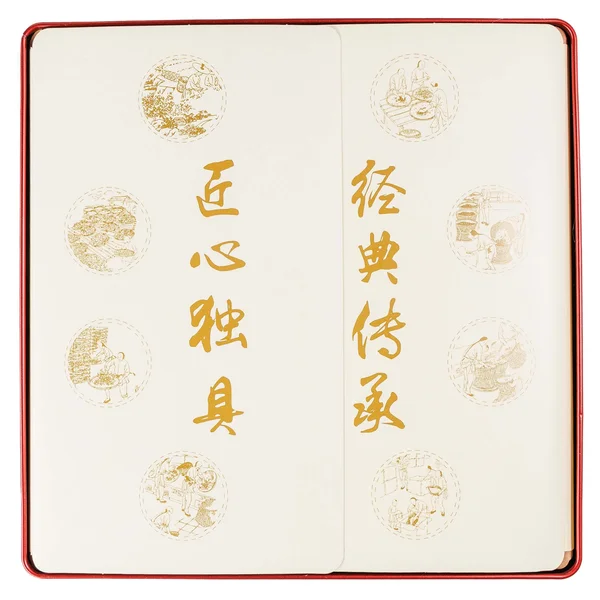 经典传承
匠心独具